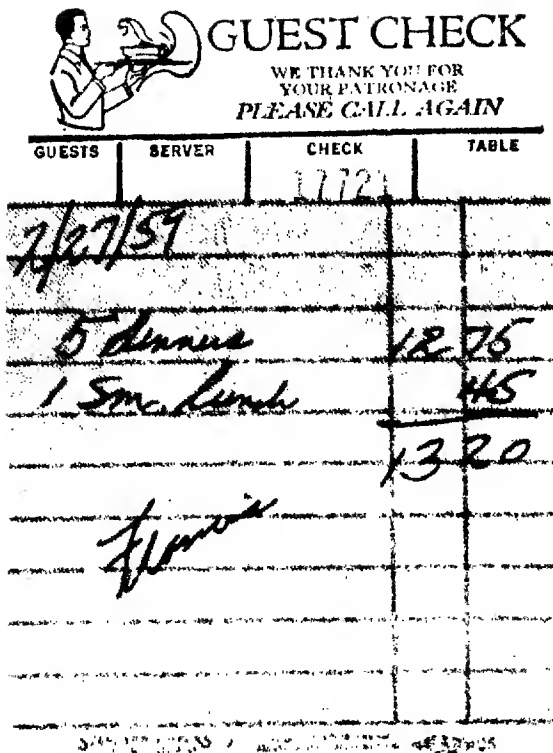 GUEST CHECK
WE THANK YOU FOR
YOUR PATRONAGE
PLEASE CALL AGAIN
GUESTS SERVER CHECK TABLE
1772
2/27/59
5 dinners 12 75
1 Sm. Lunch 45
13 20